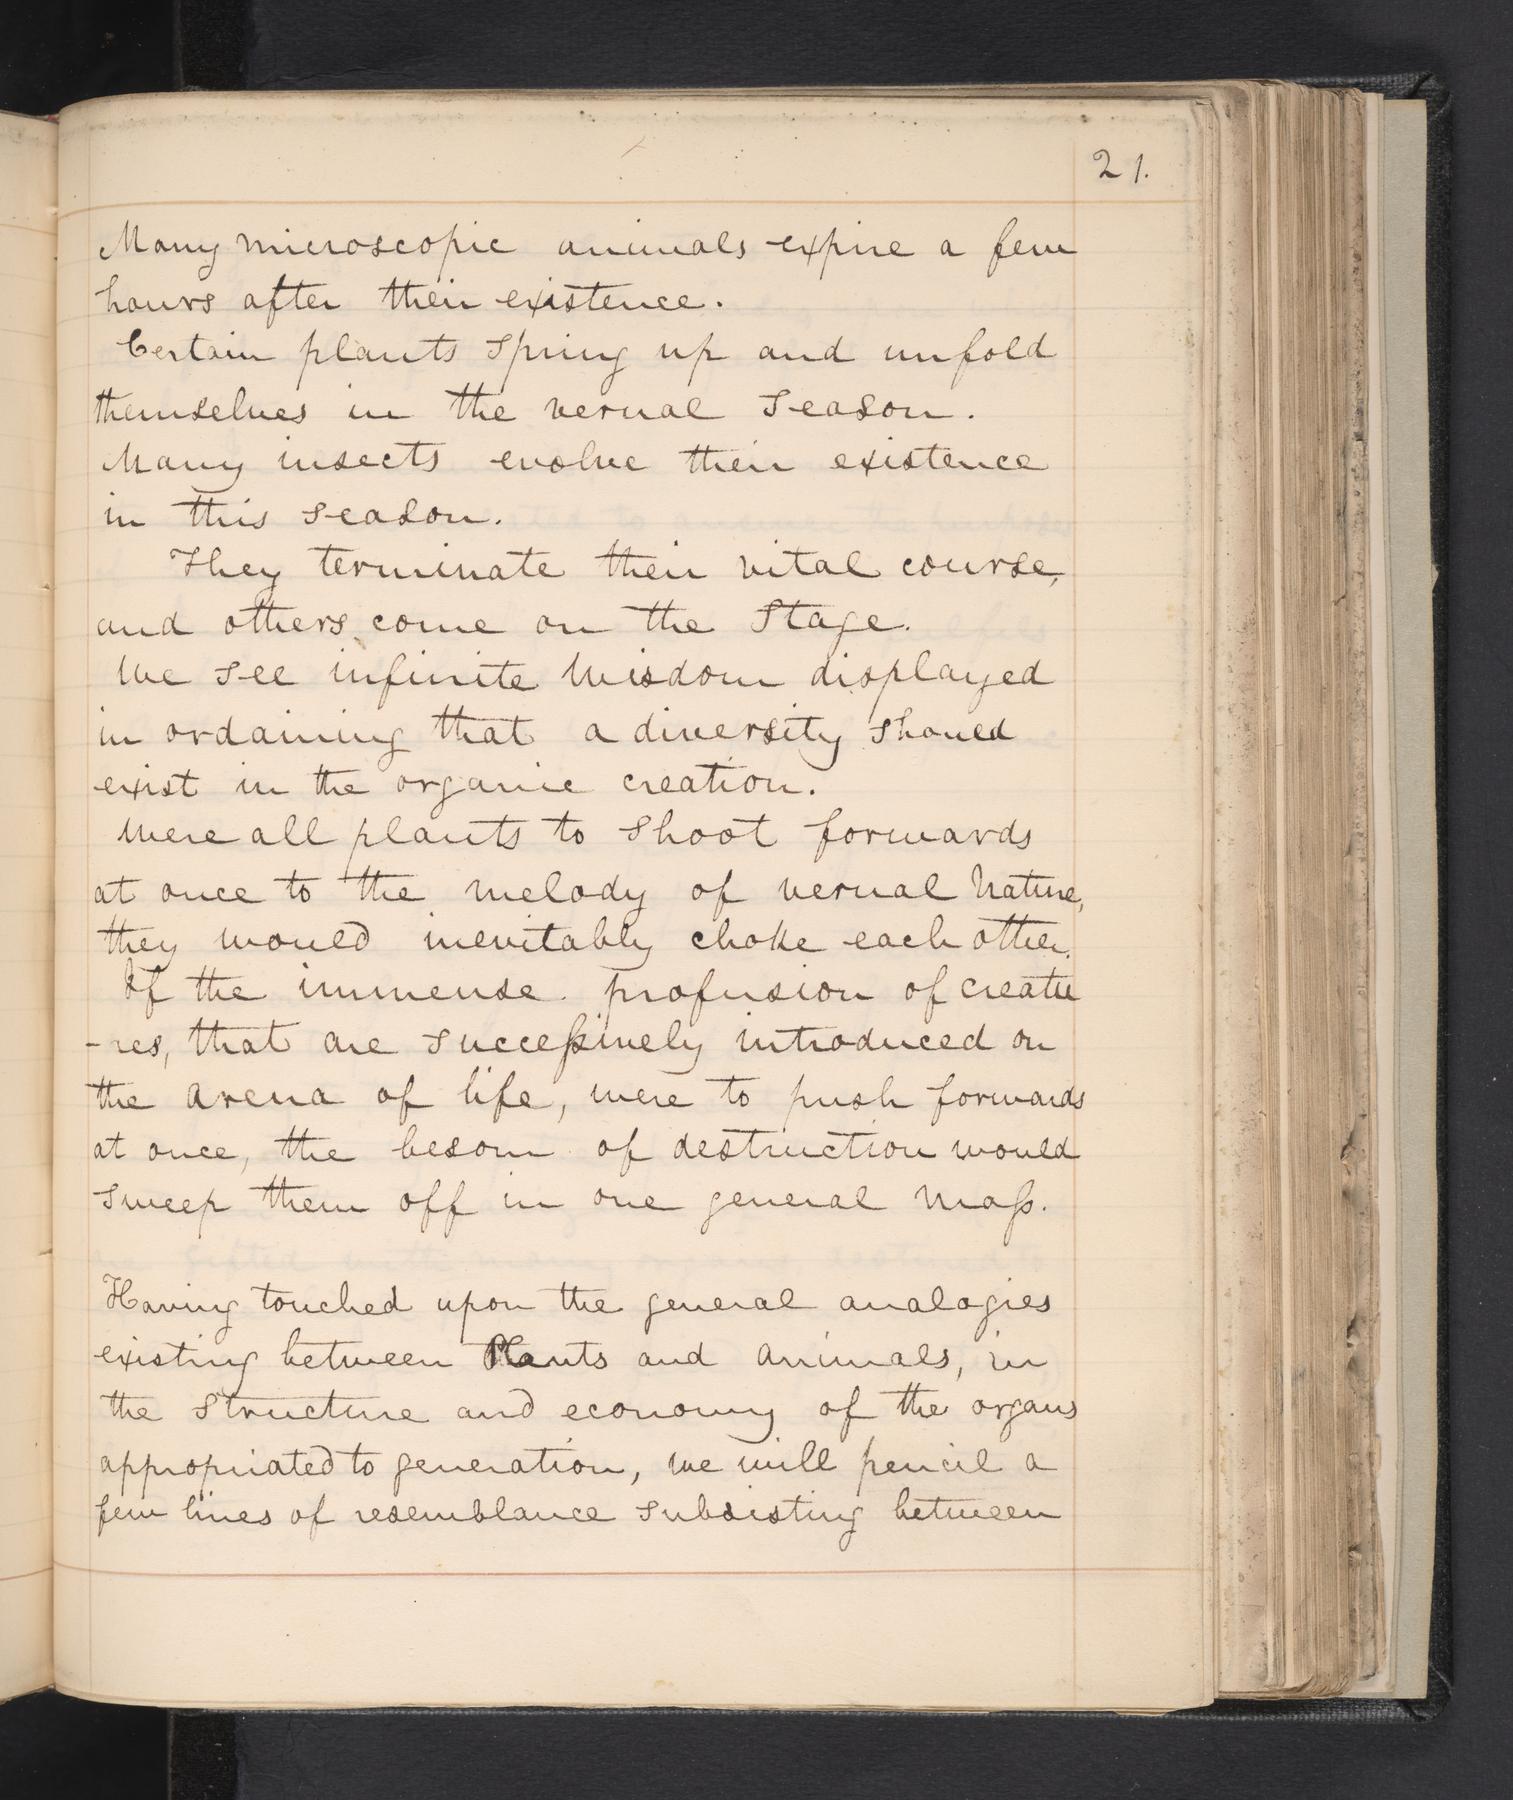 21.
Many microscopic animals expire a few
hours after their existence.
Certain plants spring up and unfold
themselves in the vernal season.
Many insects evolve their existence
in this season.
They terminate their vital course,
and others come on the stage.
We see infinite Wisdom displayed
in ordaining that a diversity should
exist in the organic creation.
Were all plants to shoot forwards
at once to the melody of vernal Nature,
they would inevitably choke each other.
If the immense profusion of creatu
-res, that are succeſsively introduced on
the arena of life, were to push forwards
at once, the besom of destruction would
sweep them off in one general Maſs.
Having touched upon the general analogies
existing between Plants and Animals, in
the structure and economy of the organs
appropriated to generation, we will pencil a
few lines of resemblance subsisting between